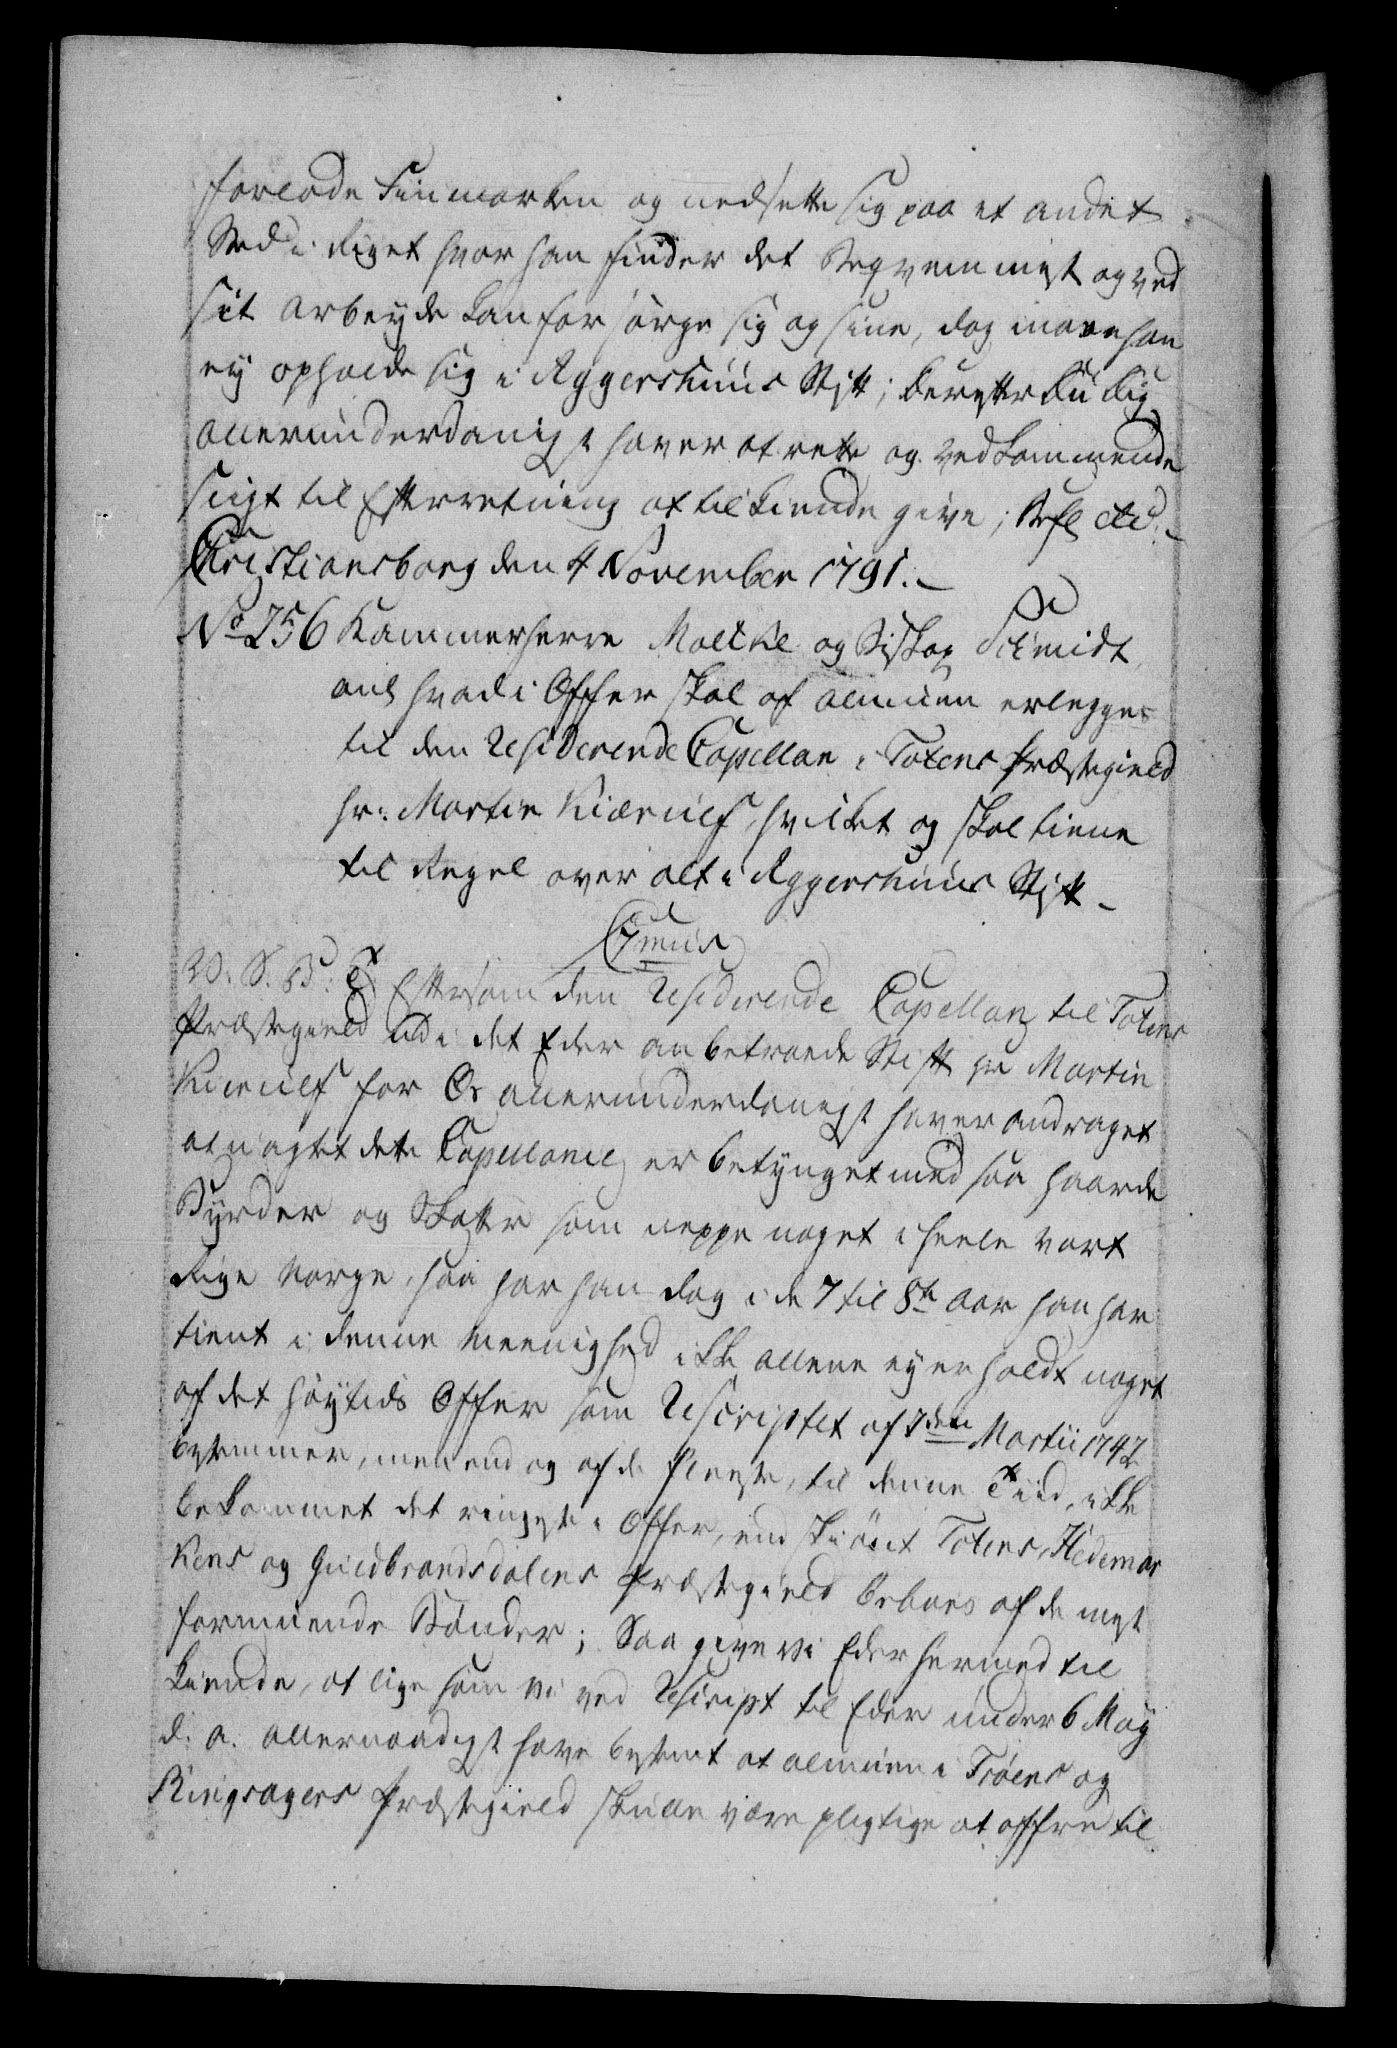 forlade Finmarken og nedsette sig paa et andet
Sted i Riget hvor han finder det Beqvemmest og ved
sit Arbeyde kan forsørge sig og sine, dog maae han
ey opholde sig i Aggershuus Stift; derefter Du Dig
allerunderdanigst haver at rette og vedkommende
sligt til Efterretning at tilkiende give; Befl etc.
Christiansborg den 4 November 1791.
No 256 Kammerherre Moltke og Biskop Schmidt
anl hvad i Offer skal af almuen erlegges
til den Residerende Capellan i Totens Præstegield
hr: Martin Kiærulf, hvilket og skal tiene
til Regel over alt i Aggershuus Stift
C7mus
V. S. B: T. Eftersom den Residerende Capellan til Totens
Præstegield udi det Eder anbetroede Stift hr Martin
Kierulf for Os allerunderdanigst haver andraget
at uagtet dette Capellanie er betynget med saa haarde
Byrder og Skatter som neppe noget i heele vort
Rige Norge, saa har han dog i de 7 til 8te Aar han har
tient i denne Meenighed ikke allene ey erholdt noget
af det høytids Offer som Rescriptet af 7den Martii 1742
bestemmer, men end og af de fleeste, til denne Tiid, ikke
bekommet det ringeste i Offer, endskiønt Totens, Hedemar
kens og Guldbrandsdalens Præstegield beboes af de mest
formuende Bønder; Saa give Vi Eder hermed til
kiende, at lige som Vi ved Rescript til Eder under 6 May
d. a. allernaadigst have bestemt at almuen i Fröens og
Ringsagers Præstegield skulle være pligtige at offre til